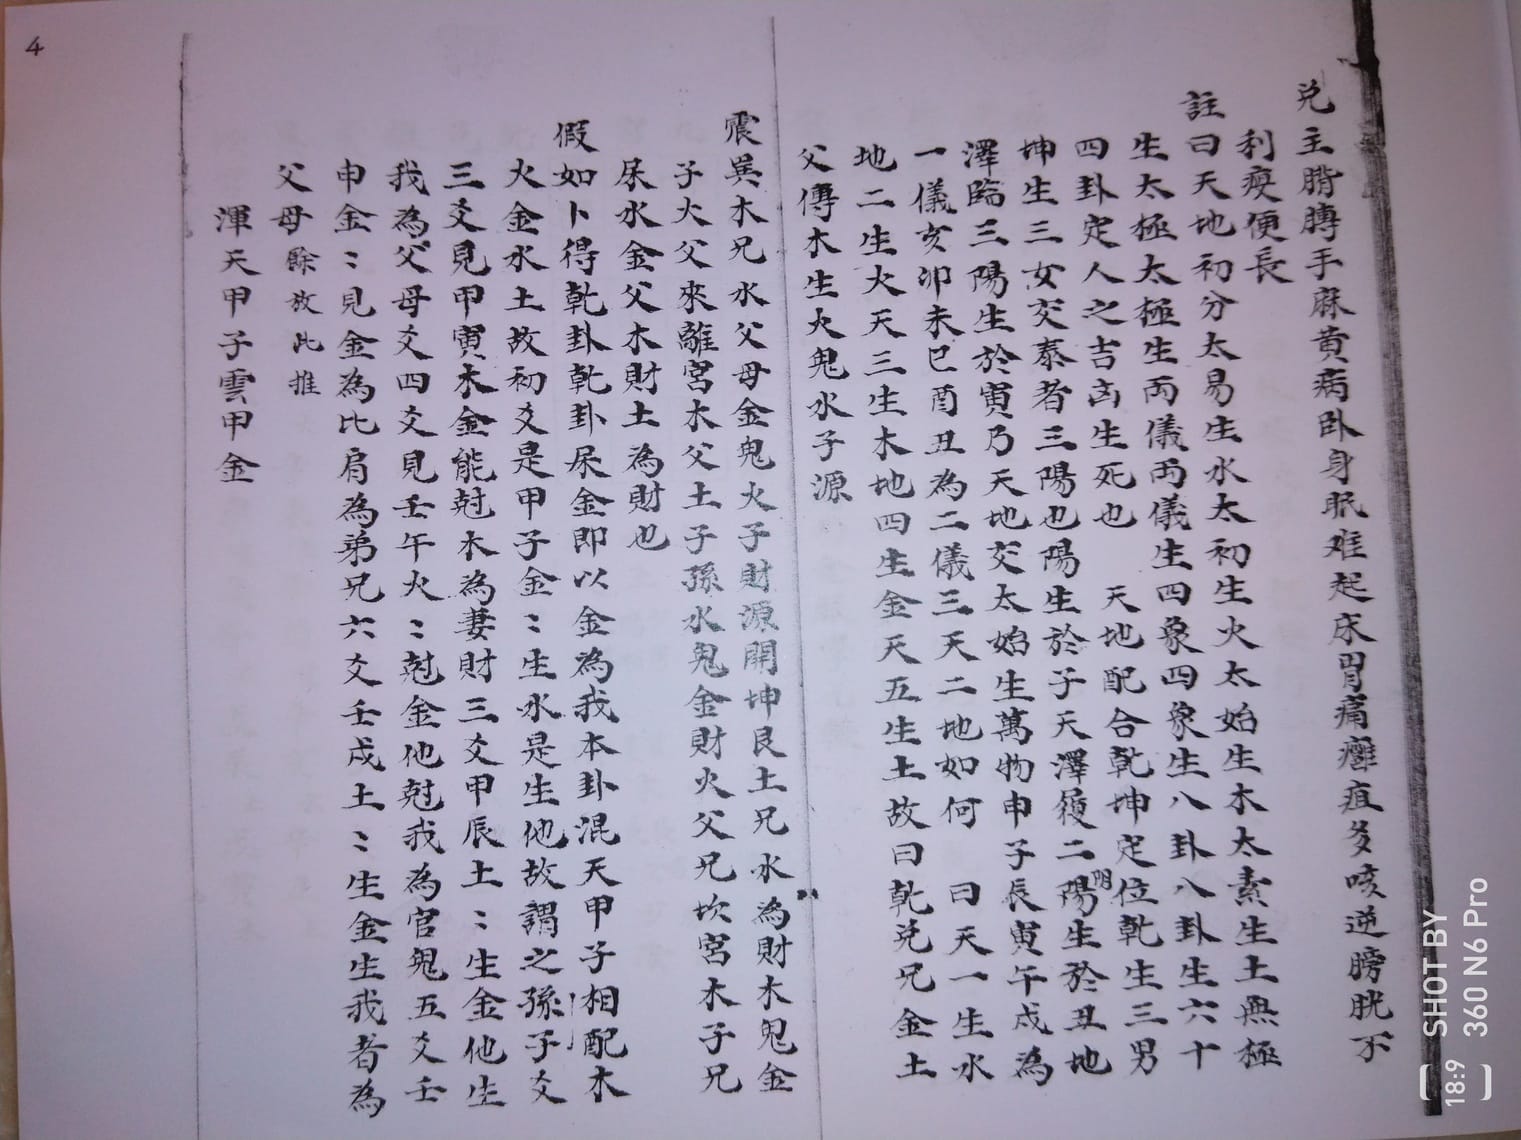 兑主腑膞手麻黄病卧身眠难起床胃痛癰疽多咳逆膀胱不
利瘦便長
註曰天地初分太易生水太初生火太始生木太素生土無極
生太極太極生両儀両儀生四象四象生八卦八卦生六十
四卦定人之吉凶生死也 天地配合乾坤定位乾生三男
坤生三女交泰者三陽也陽生於子天澤履二陽生於丑地
明
澤臨三陽生於寅乃天地交太始生萬物申子辰寅午戌為
一儀亥卯未巳酉丑為二儀三天二地如何 曰天一生水
地二生火天三生木地四生金天五生土故曰乾兑兄金土
父傳木生火鬼水子源
震巽木兄水父母金鬼火子財源開坤艮土兄水為財木鬼金
子火父來離宮木父土子孫水鬼金財火父兄坎宮木子兄
尿水金父木財土為財也
假如卜得乾卦乾卦屎金即以金為我本卦混天甲子相配木
火金水土故初爻是甲子金〻生水是生他故謂之孫子爻
三爻見甲寅木金能尅木為妻財三爻甲辰土〻生金他生
我為父母爻四爻見壬午火〻尅金他尅我為官鬼五爻壬
申金〻見金為比肩為弟兄六爻壬戌土〻生金生我者為
父母餘放此推
渾天甲子雲甲金
4
SHOT BY
360 N6 Pro
18:9